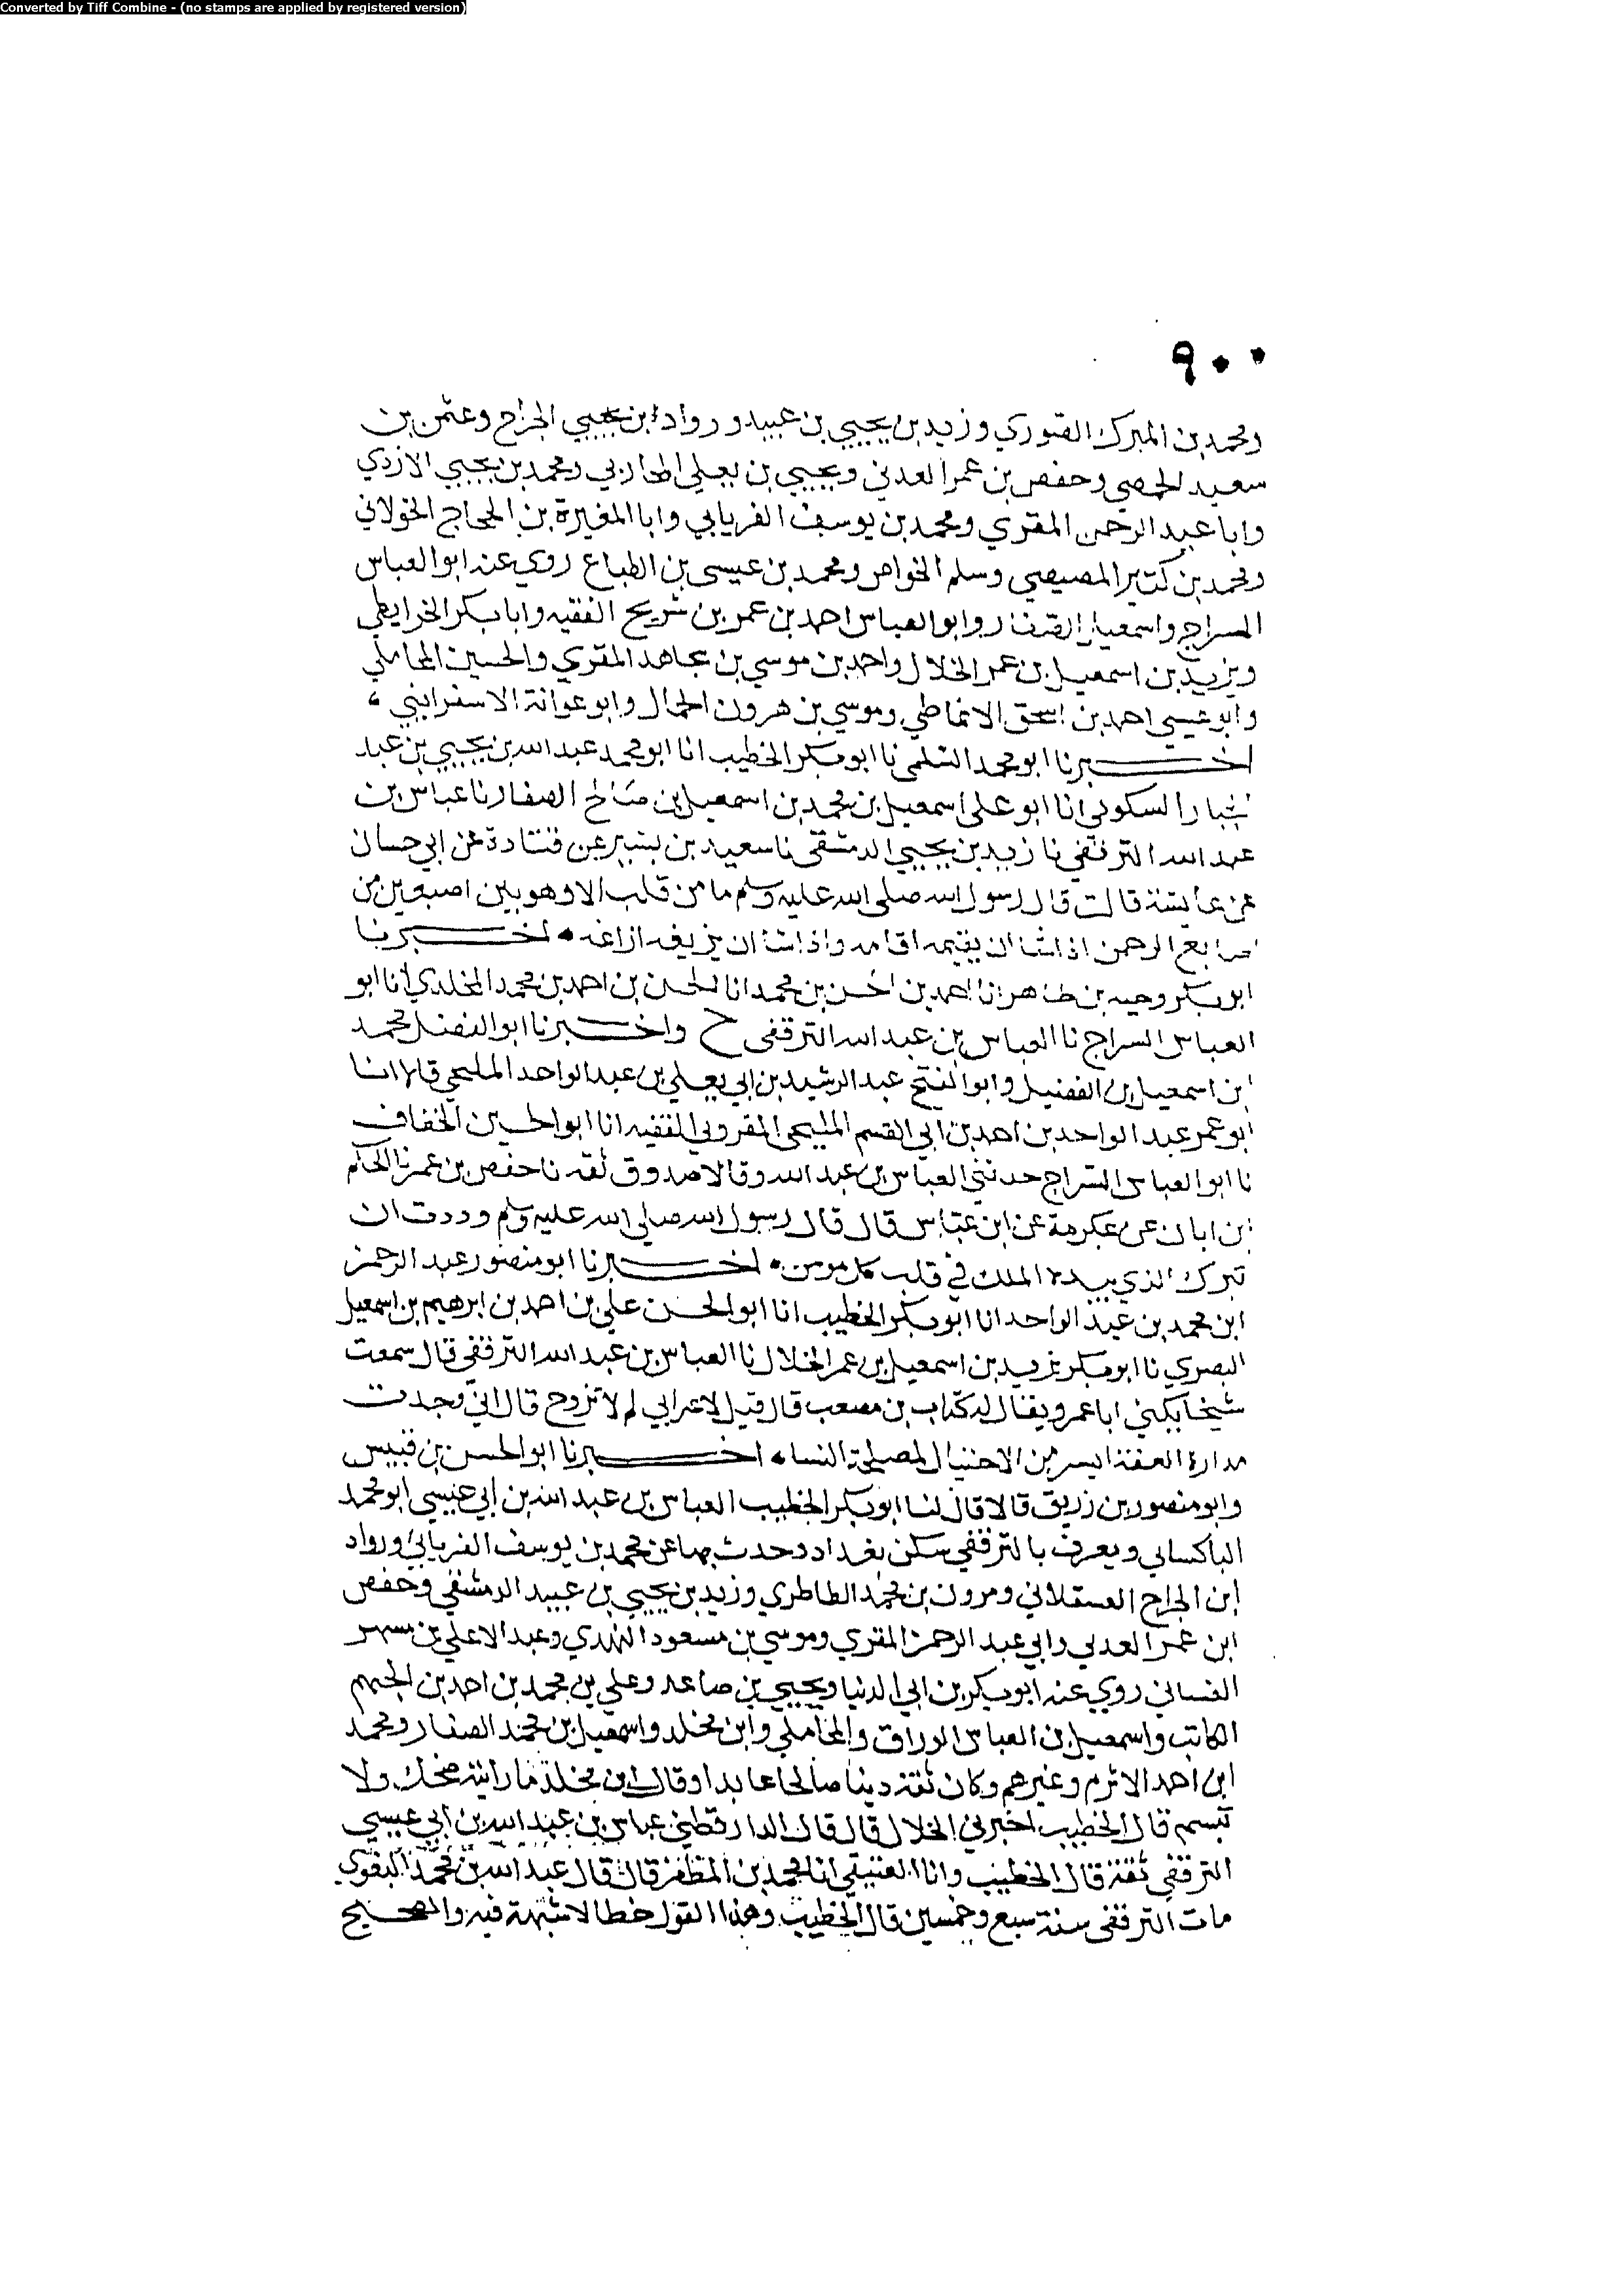 Converted by Tiff Combine - (no stamps are applied by registered version)
٩٠٠
ومحمد بن المبرك الصوري وزيد بن يحيي بن عبيد ورواد ابن يحيي الجراح وعثمن بن
سعيد الحمصي وحفص بن عمر العدني ويحيي بن يعلي المحاربي ومحمد بن يحيي الازدي
وابا عبد الرحمن المقري ومحمد بن يوسف الفريابي وابا المغيرة بن الحجاج الخولاني
ومحمد بن كثير المصيصي وسلم الخواص ومحمد بن عيسى بن الطباع روي عنه ابو العباس
السراج واسمعيل الصفار وابو العباس احمد بن عمر بن شريح الفقيه وابا بكر الخرايطي
ويزيد بن اسمعيل بن عمر الخلال واحمد بن موسي بن مجاهد المقري والحسين المحاملي
وابو عيسي احمد بن اسحق الانماطي وموسي بن هرون الحمال وابو عوانة الاسفرايني ،
اخبرنا ابو محمد السلمي نا ابو بكر الخطيب انا ابو محمد عبد الله بن يحيي بن عبد
الجبار السكوني انا ابو على اسمعيل بن محمد بن اسمعيل بن صالح الصفار نا عباس بن
عبد الله الترقفي نا زيد بن يحيي الدمشقي نا سعيد بن بشير عن قتادة عن ابي حسان
عن عايشة قالت قال رسول الله صلى الله عليه وسلم ما من قلب الا وهو بين اصبعين من
اصابع الرحمن اذا شا ان يقيمه اقامه واذا شا ان يزيغه ازاغه • اخبرنا
ابو بكر وجيه بن طاهر انا احمد بن الحسن بن محمد انا الحسن بن احمد بن محمد المخلدي انا ابو
العباس السراج نا العباس بن عبد الله الترقفى ح واخبرنا ابو الفضل محمد
ابن اسمعيل بن الفضيل وابو الفتح عبد الرشيد بن ابي يعلي بن عبد الواحد المليحي قالا انا
ابو عمر عبد الواحد بن احمد بن ابي القسم المليحي الفقيه انا ابو الحسين الخفاف
نا ابو العباس السراج حدثني العباس بن عبد الله وقالا صدوق ثقه نا حفص بن عمر نا الحكم
بن ابان عن عكرمة عن ابن عباس قال قال رسول الله صلي الله عليه وسلم وددت ان
تبرك الذي بيده الملك في قلب كل مومن • اخبرنا ابو منصور عبد الرحمن
ابن محمد بن عبد الواحد انا ابو بكر الخطيب انا ابو الحسن علي بن احمد بن ابرهيم بن اسمعيل
البصري نا ابو بكر يزيد بن اسمعيل بن عمر الخلال نا العباس بن عبد الله الترقفي قال سمعت
شيخا يكنى ابا عمرو يقال له كتاب بن مصعب قال قيل لاعرابي لم لا تزوج قال اني وجدت
مداراة العفة ايسر من الاحتيال لمصلحة النسا • اخبرنا ابو الحسن بن قبيس
وابو منصور بن زريق قالا قال لنا ابو بكر الخطيب العباس بن عبد الله بن ابي عيسي ابو محمد
الباكسائي ويعرف بالترقفي سكن بغداد وحدث بها عن محمد بن يوسف الفريابي ورواد
ابن الجراح العسقلاني ومرون بن محمد الطاطري وزيد بن يحيي بن عبيد الدمشقي وحفص
ابن عمر العدني وابي عبد الرحمن المقري وموسي بن مسعود النهدي وعبد الاعلي بن مسهر
الغساني روي عنه ابو بكر بن ابي الدنيا ويحيي بن صاعد وعلي بن محمد بن احمد بن الجهم
الكاتب واسمعيل بن العباس الوراق والمحاملي وابن مخلد واسمعيل بن محمد الصفار ومحمد
ابن احمد الاثرم وغيرهم وكان ثقة دينا صالحا عابدا وقال ابن مخلد ما رايته ضحك ولا
تبسم قال الخطيب اخبرني الخلال قال قال الدارقطني عباس بن عبد الله بن ابي عيسي
الترقفي ثقة قال الخطيب وانا العتيقي انا محمد بن المظفر قال قال عبد الله بن محمد البغوي
مات الترقفى سنة سبع وخمسين قال الخطيب وهذا القول خطا لا شبهة فيه والصحيح